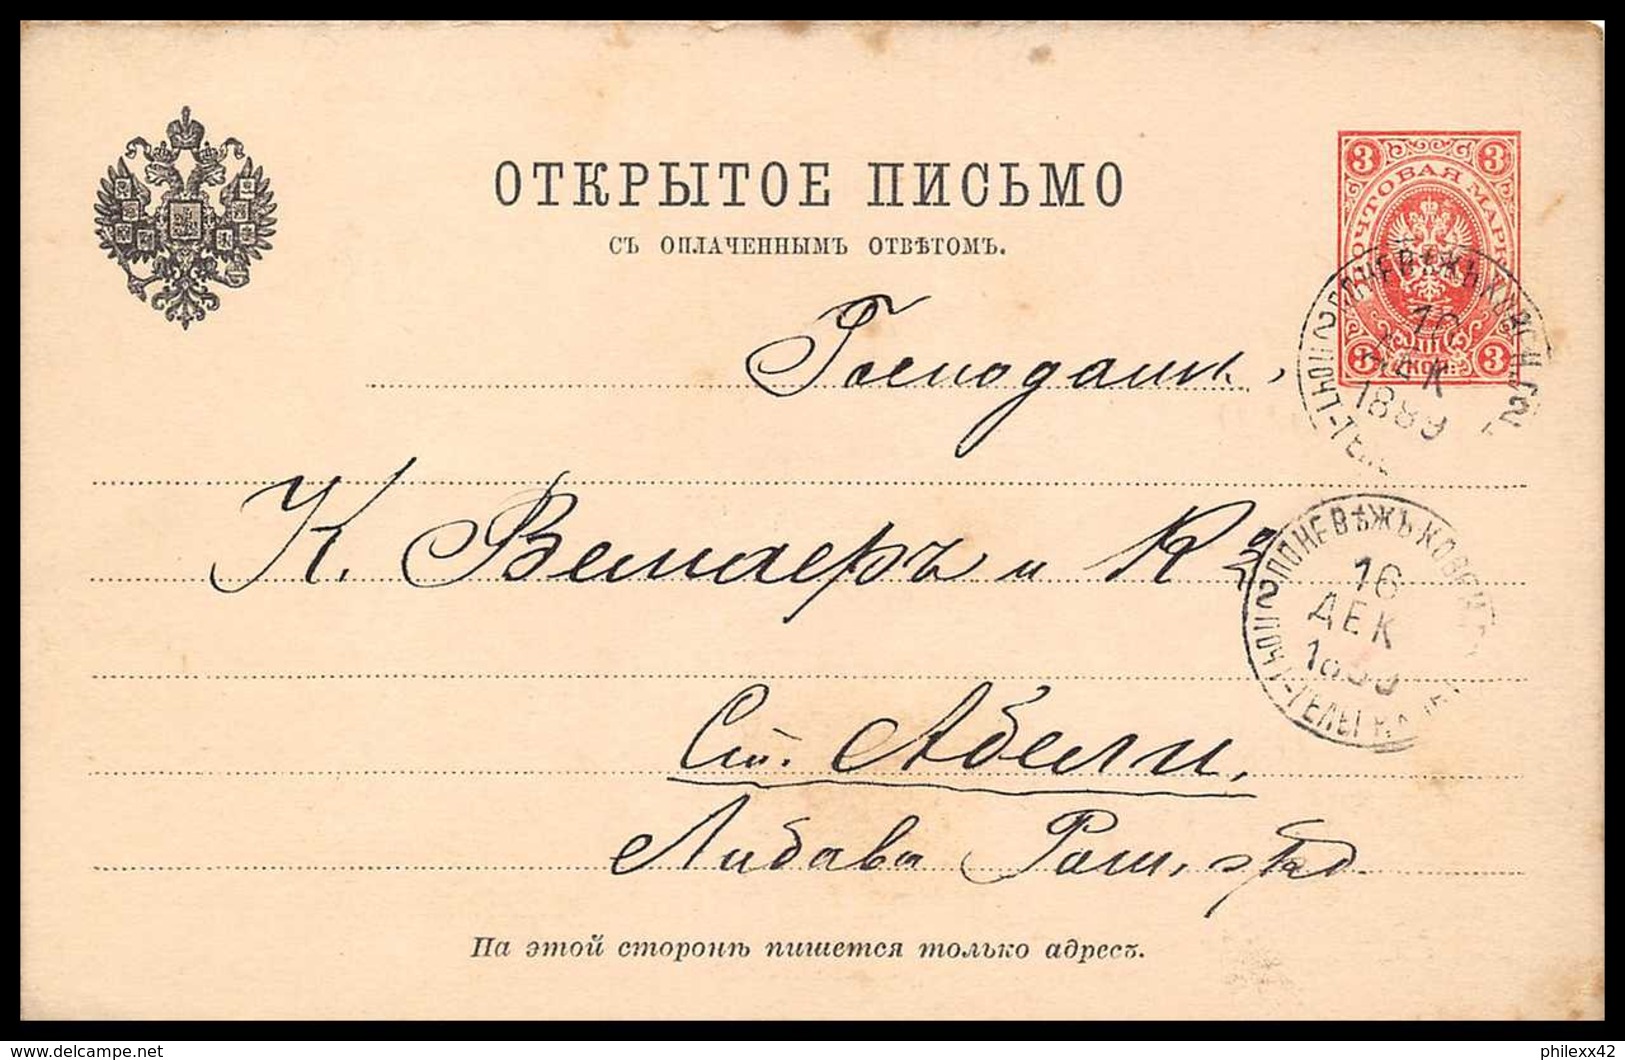 ОТКРЫТОЕ ПИСЬМО
СЪ ОПЛАЧЕННЫМЪ ОТВѢТОМЪ.
3 3
ПОЧТОВАЯ МАРКА
3 КОП. 3
ПОНЕВѢЖЪ КОВЕН. Г.
16
ДЕК
1889
ПОЧТ-ТЕЛ
Господам.
К. Вемперъ и Кº
ПОНЕВѢЖЪ КОВЕН.
16
ДЕК
1889
ПОЧТ-ТЕЛЕГР.
Ст. Абели,
Либаво Ром. жд
На этой сторонѣ пишется только адресъ.
delcampe.net
philexx42